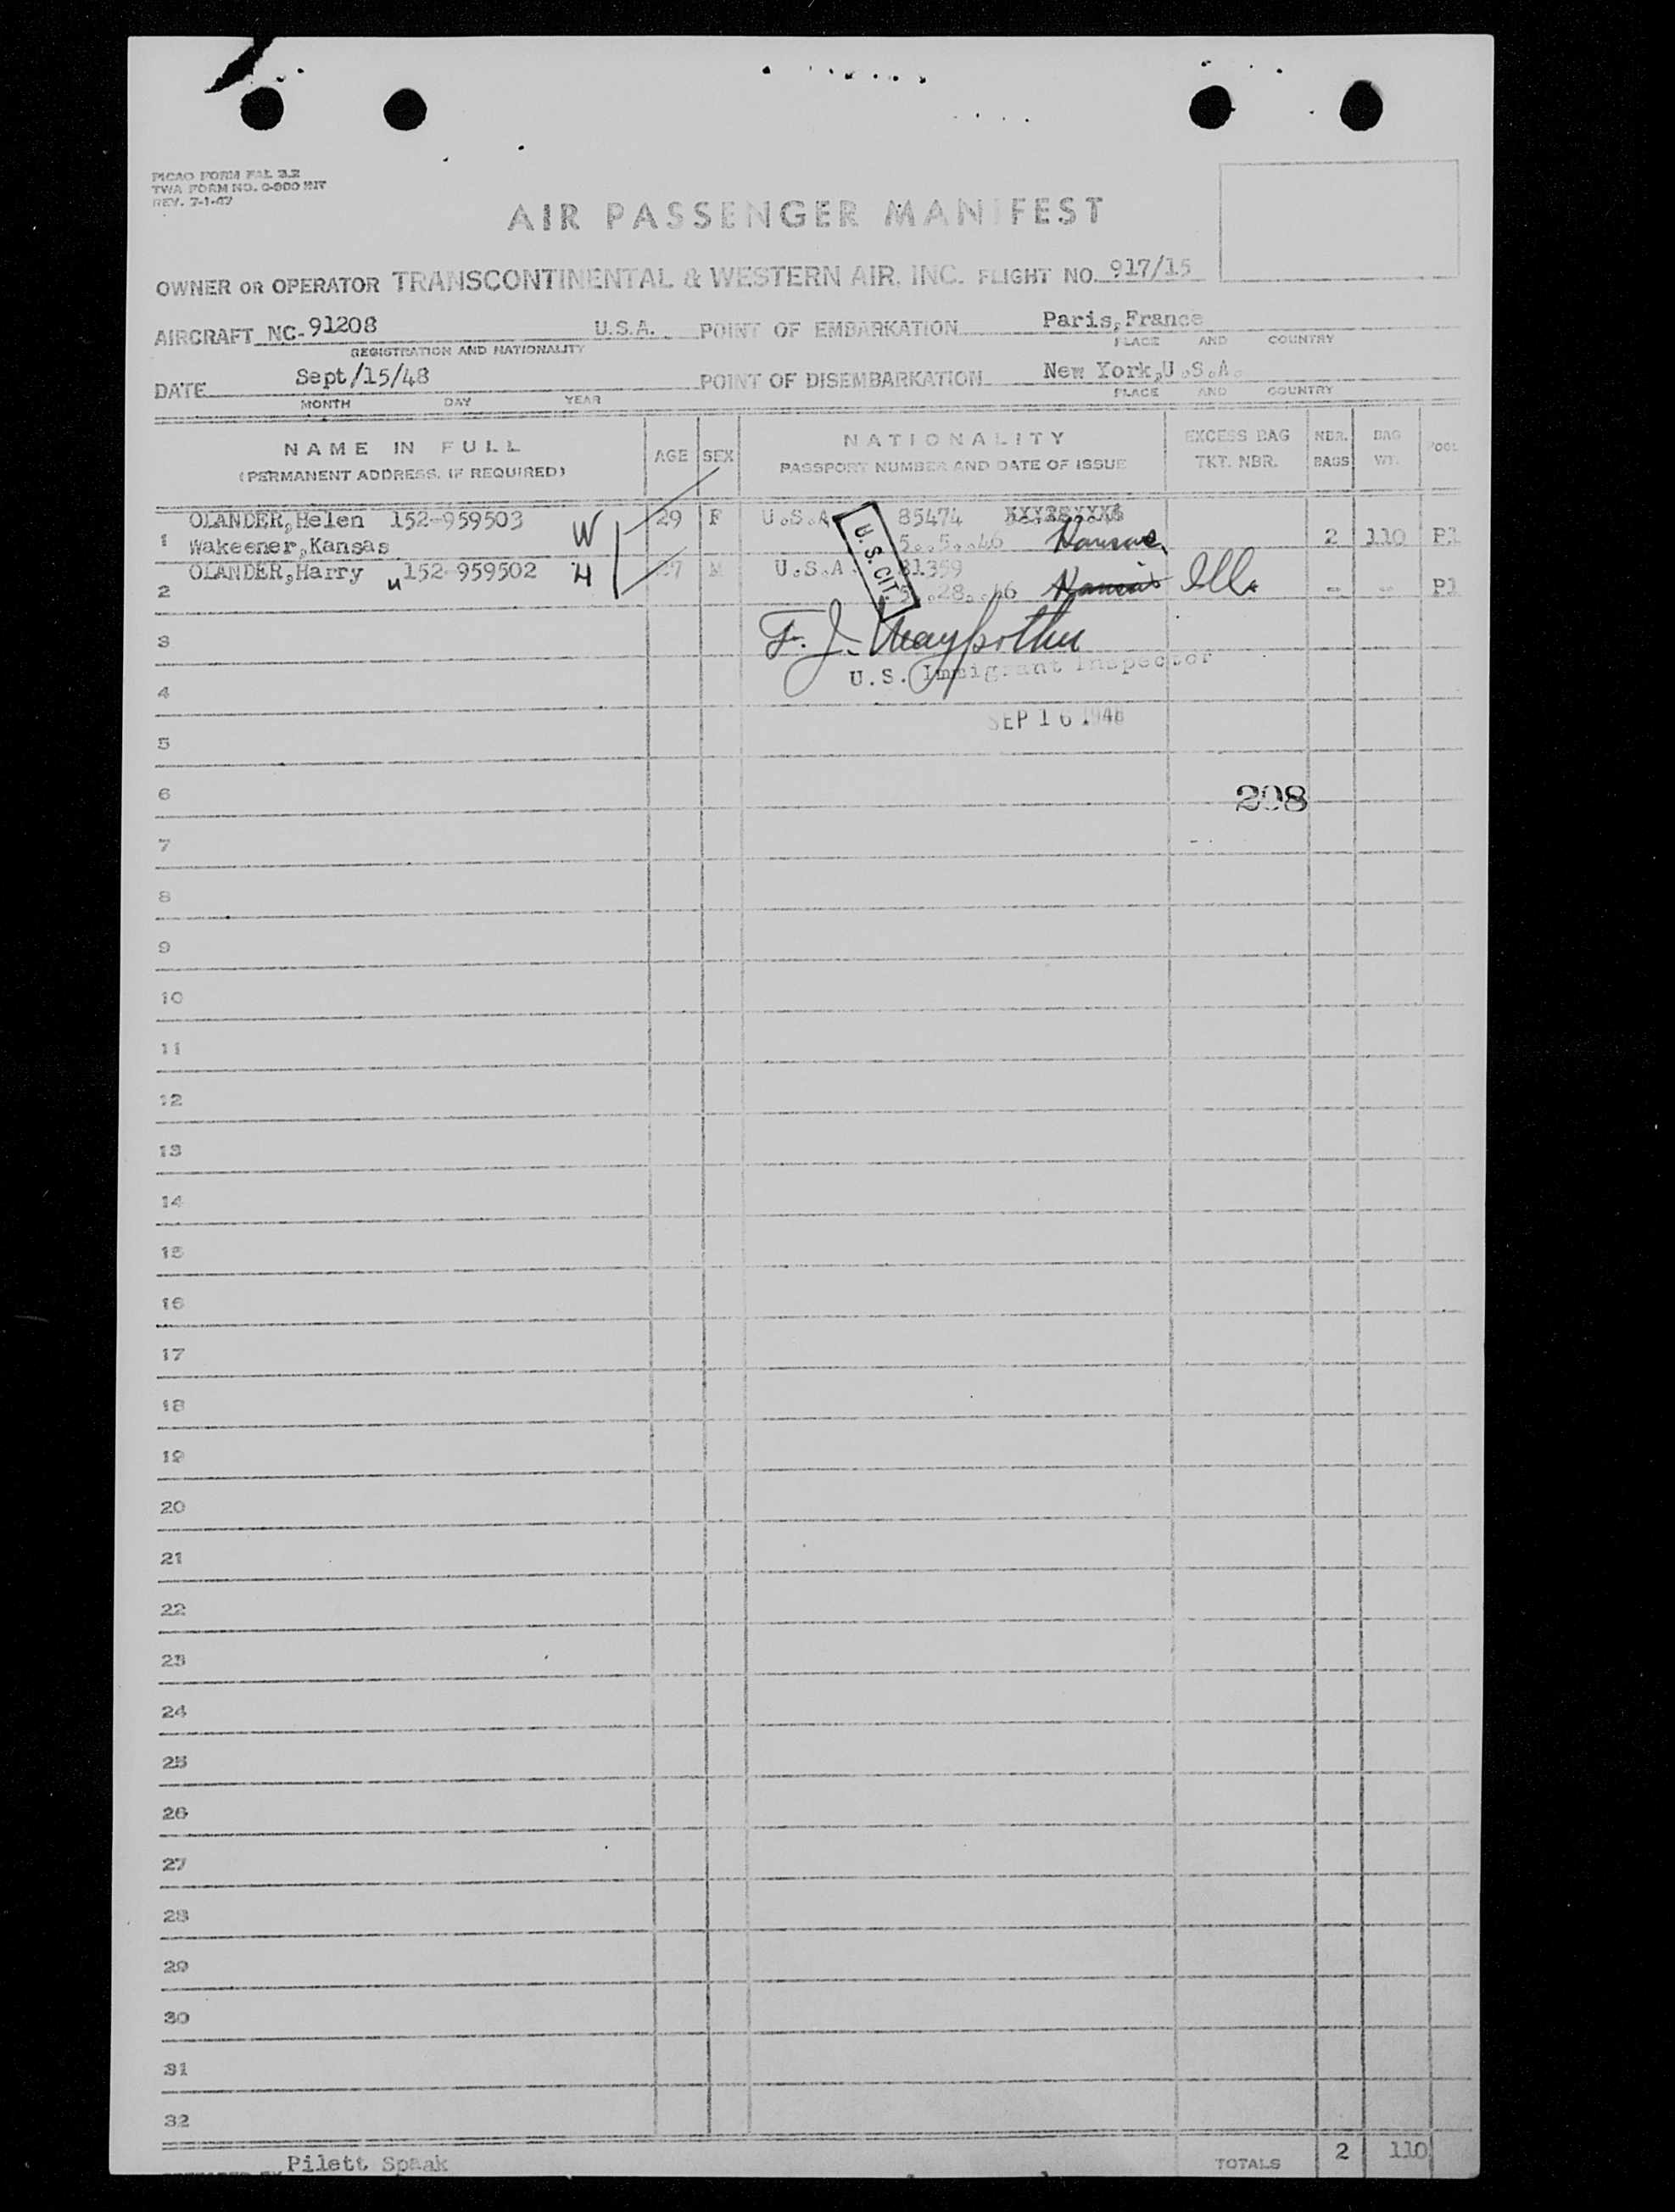 PICAO FORM FAL 3.2
TWA FORM NO. O-900 INT
REV. 7-1-47
AIR PASSENGER MANIFEST
OWNER OR OPERATOR TRANSCONTINENTAL & WESTERN AIR, INC. FLIGHT NO. 917/15
AIRCRAFT NC-91208 U.S.A. POINT OF EMBARKATION Paris,France
REGISTRATION AND NATIONALITY PLACE AND COUNTRY
DATE Sept/15/48 POINT OF DISEMBARKATION New York,U.S.A.
MONTH DAY YEAR PLACE AND COUNTRY
NAME IN FULL AGE SEX NATIONALITY EXCESS BAG NBR. BAG POOL
(PERMANENT ADDRESS, IF REQUIRED) PASSPORT NUMBER AND DATE OF ISSUE TKT. NBR. BAGS WT.
OLANDER,Helen 152-959503 W 29 F U.S.A 85474
1 Wakeener,Kansas 5..5..46 2 110 P1
OLANDER,Harry 152-959502 H M U.S.A 31359
2 .28..46 Kansas Ill. -- -- P1
U.S. CIT.
3 F. J.
U.S. Immigrant Inspector
4
SEP 16 1948
5
6 298
7
8
9
10
11
12
13
14
15
16
17
18
19
20
21
22
23
24
25
26
27
28
29
30
31
32
Pilett Spaak TOTALS 2 110